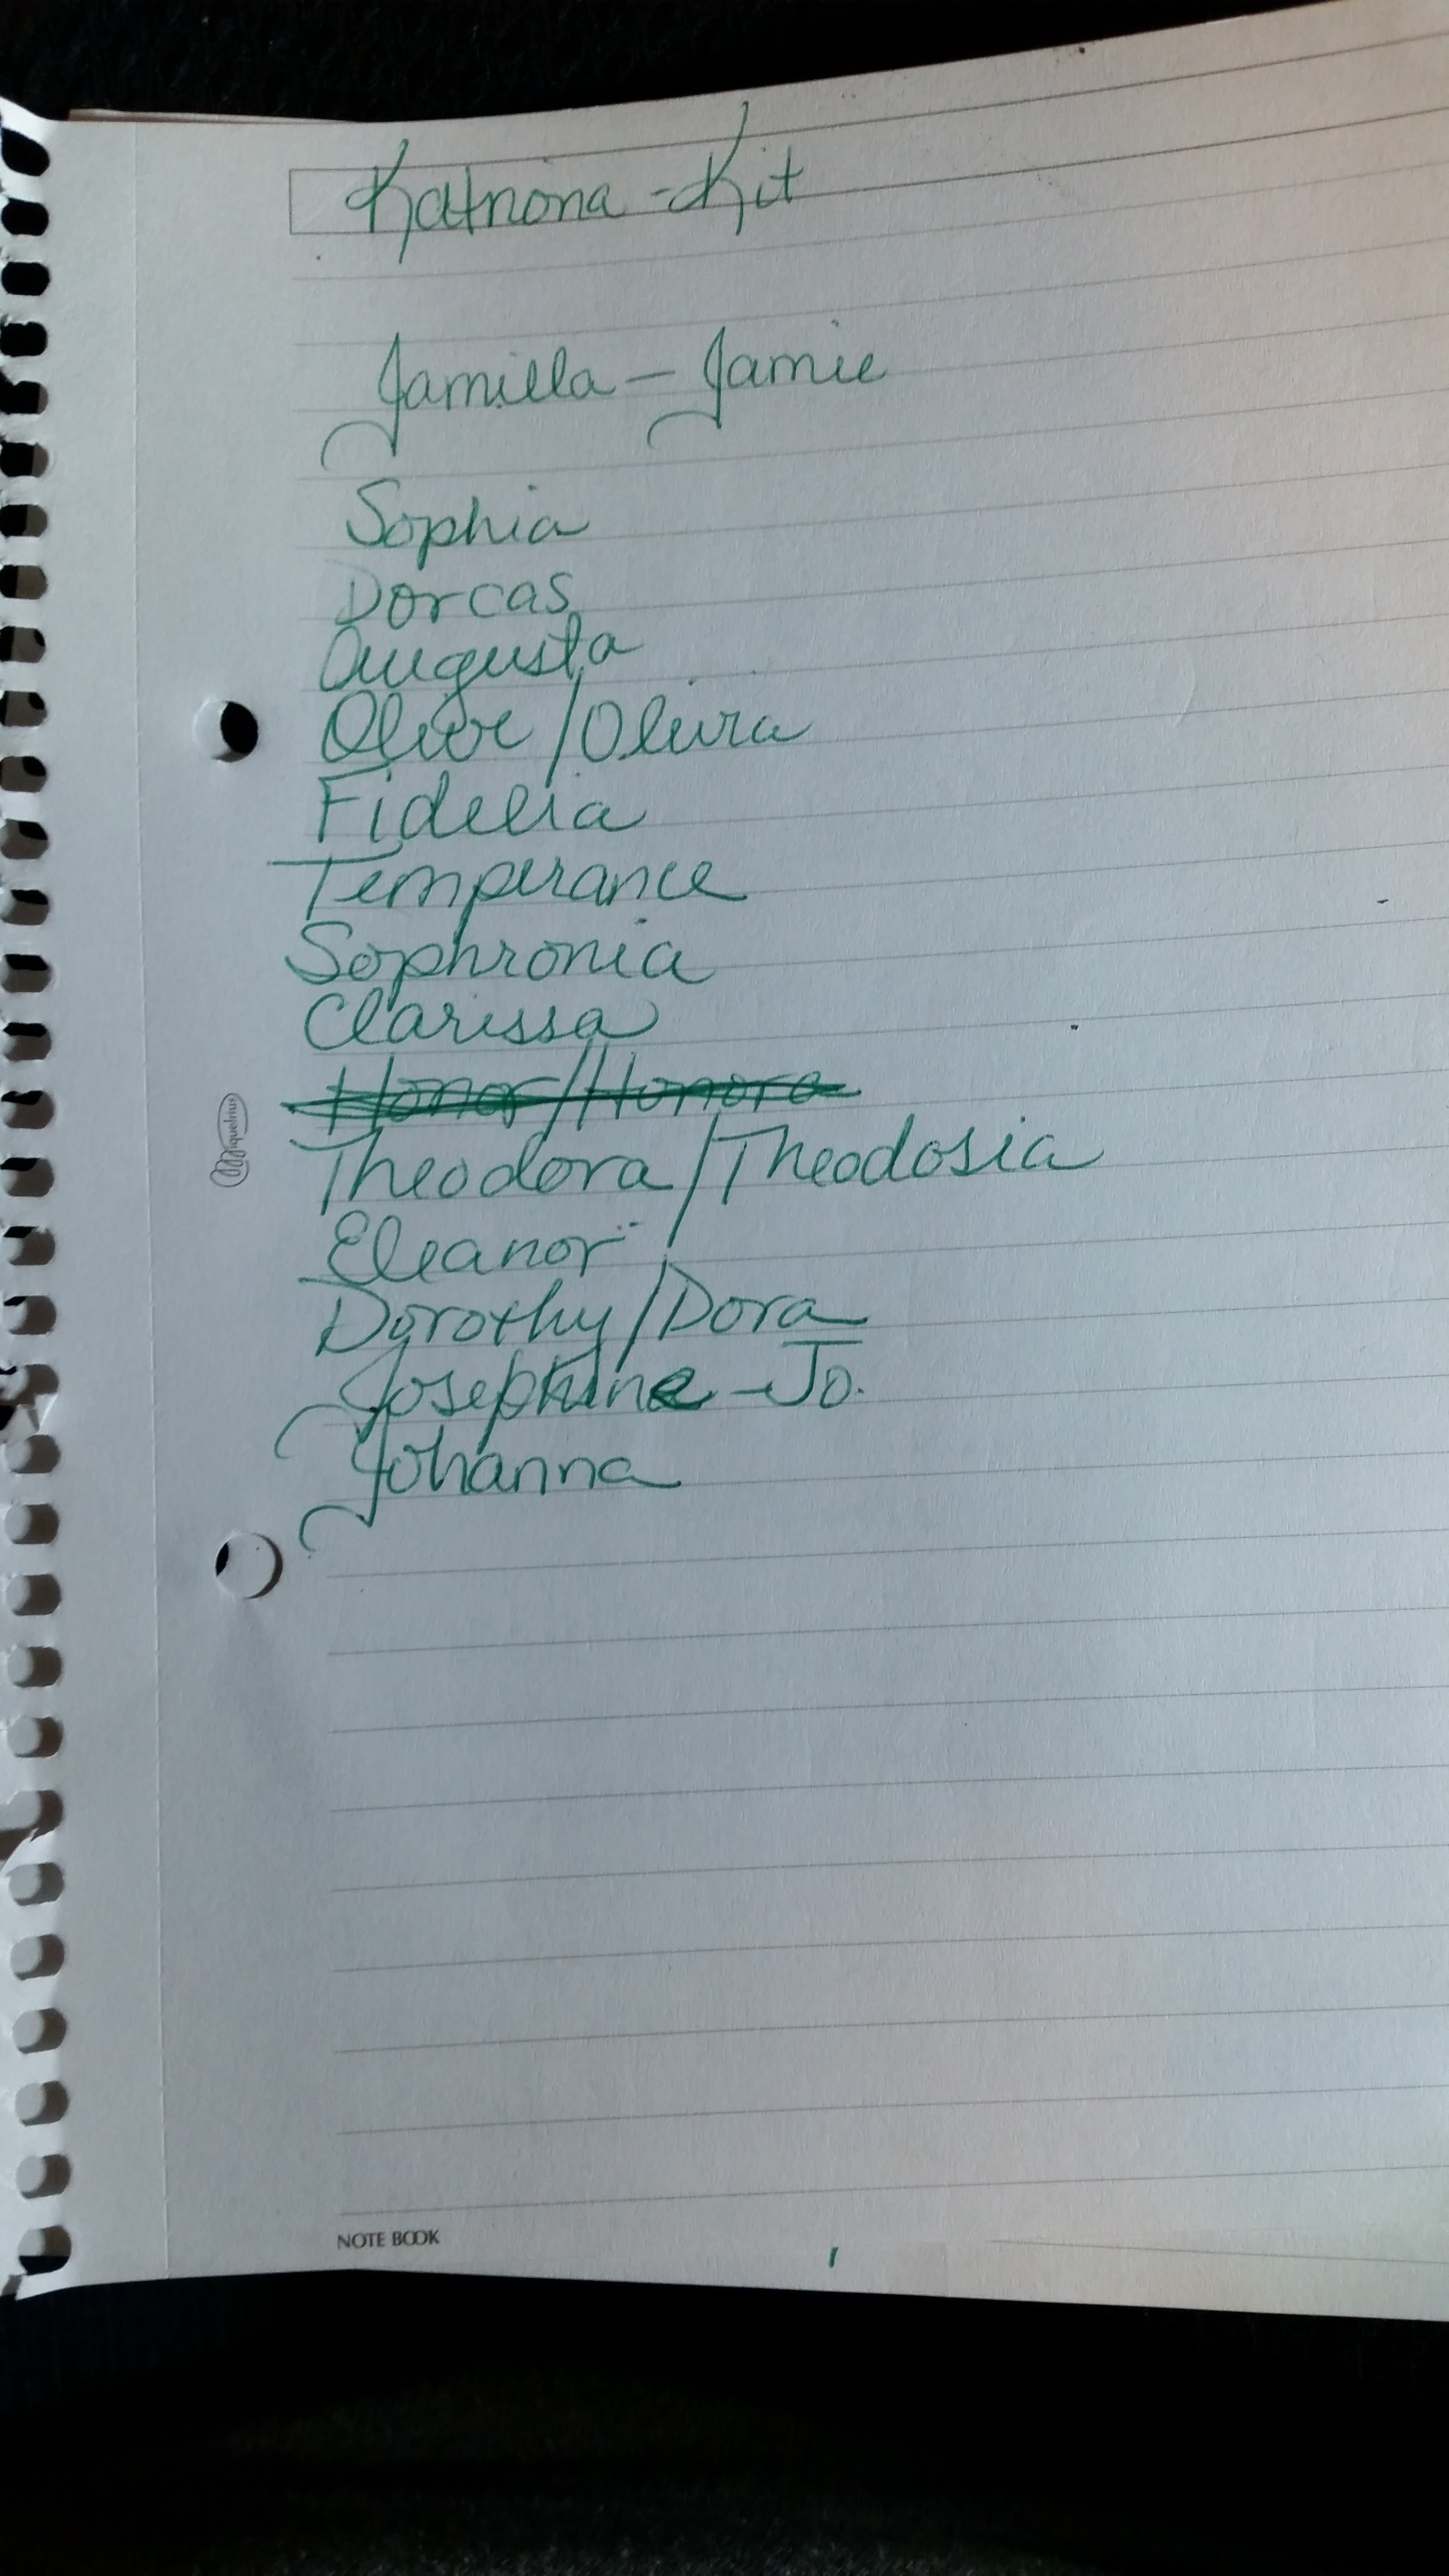 Katriona - Kit
Jamilla - Jamie
Sophia
Dorcas
Augusta
Olive / Olivia
Fidelia
Temperance
Sophronia
Clarissa
Honor / Honora
Theodora / Theodosia
Eleanor
Dorothy / Dora
Josephine - Jo.
Johanna
miquelrius
NOTE BOOK